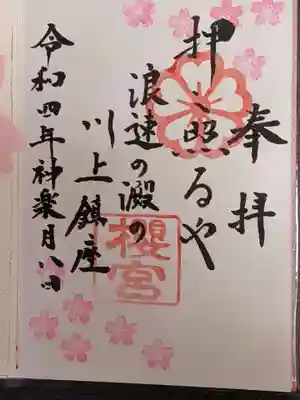 奉拝
押し照るや
浪速の澱の
川上鎮座
櫻宮
令和四年神楽月八日